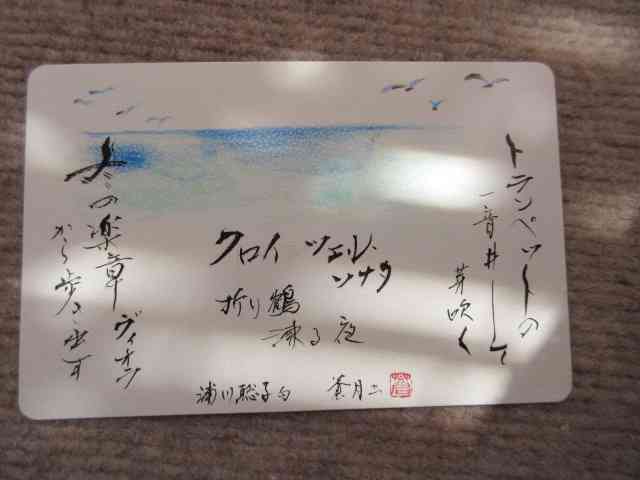 トランペットの
一音♯して
芽吹く
クロイツェル・
ソナタ
折り鶴
凍る夜
冬の楽章 ヴィオラ
から歩き出す
浦川聡子句